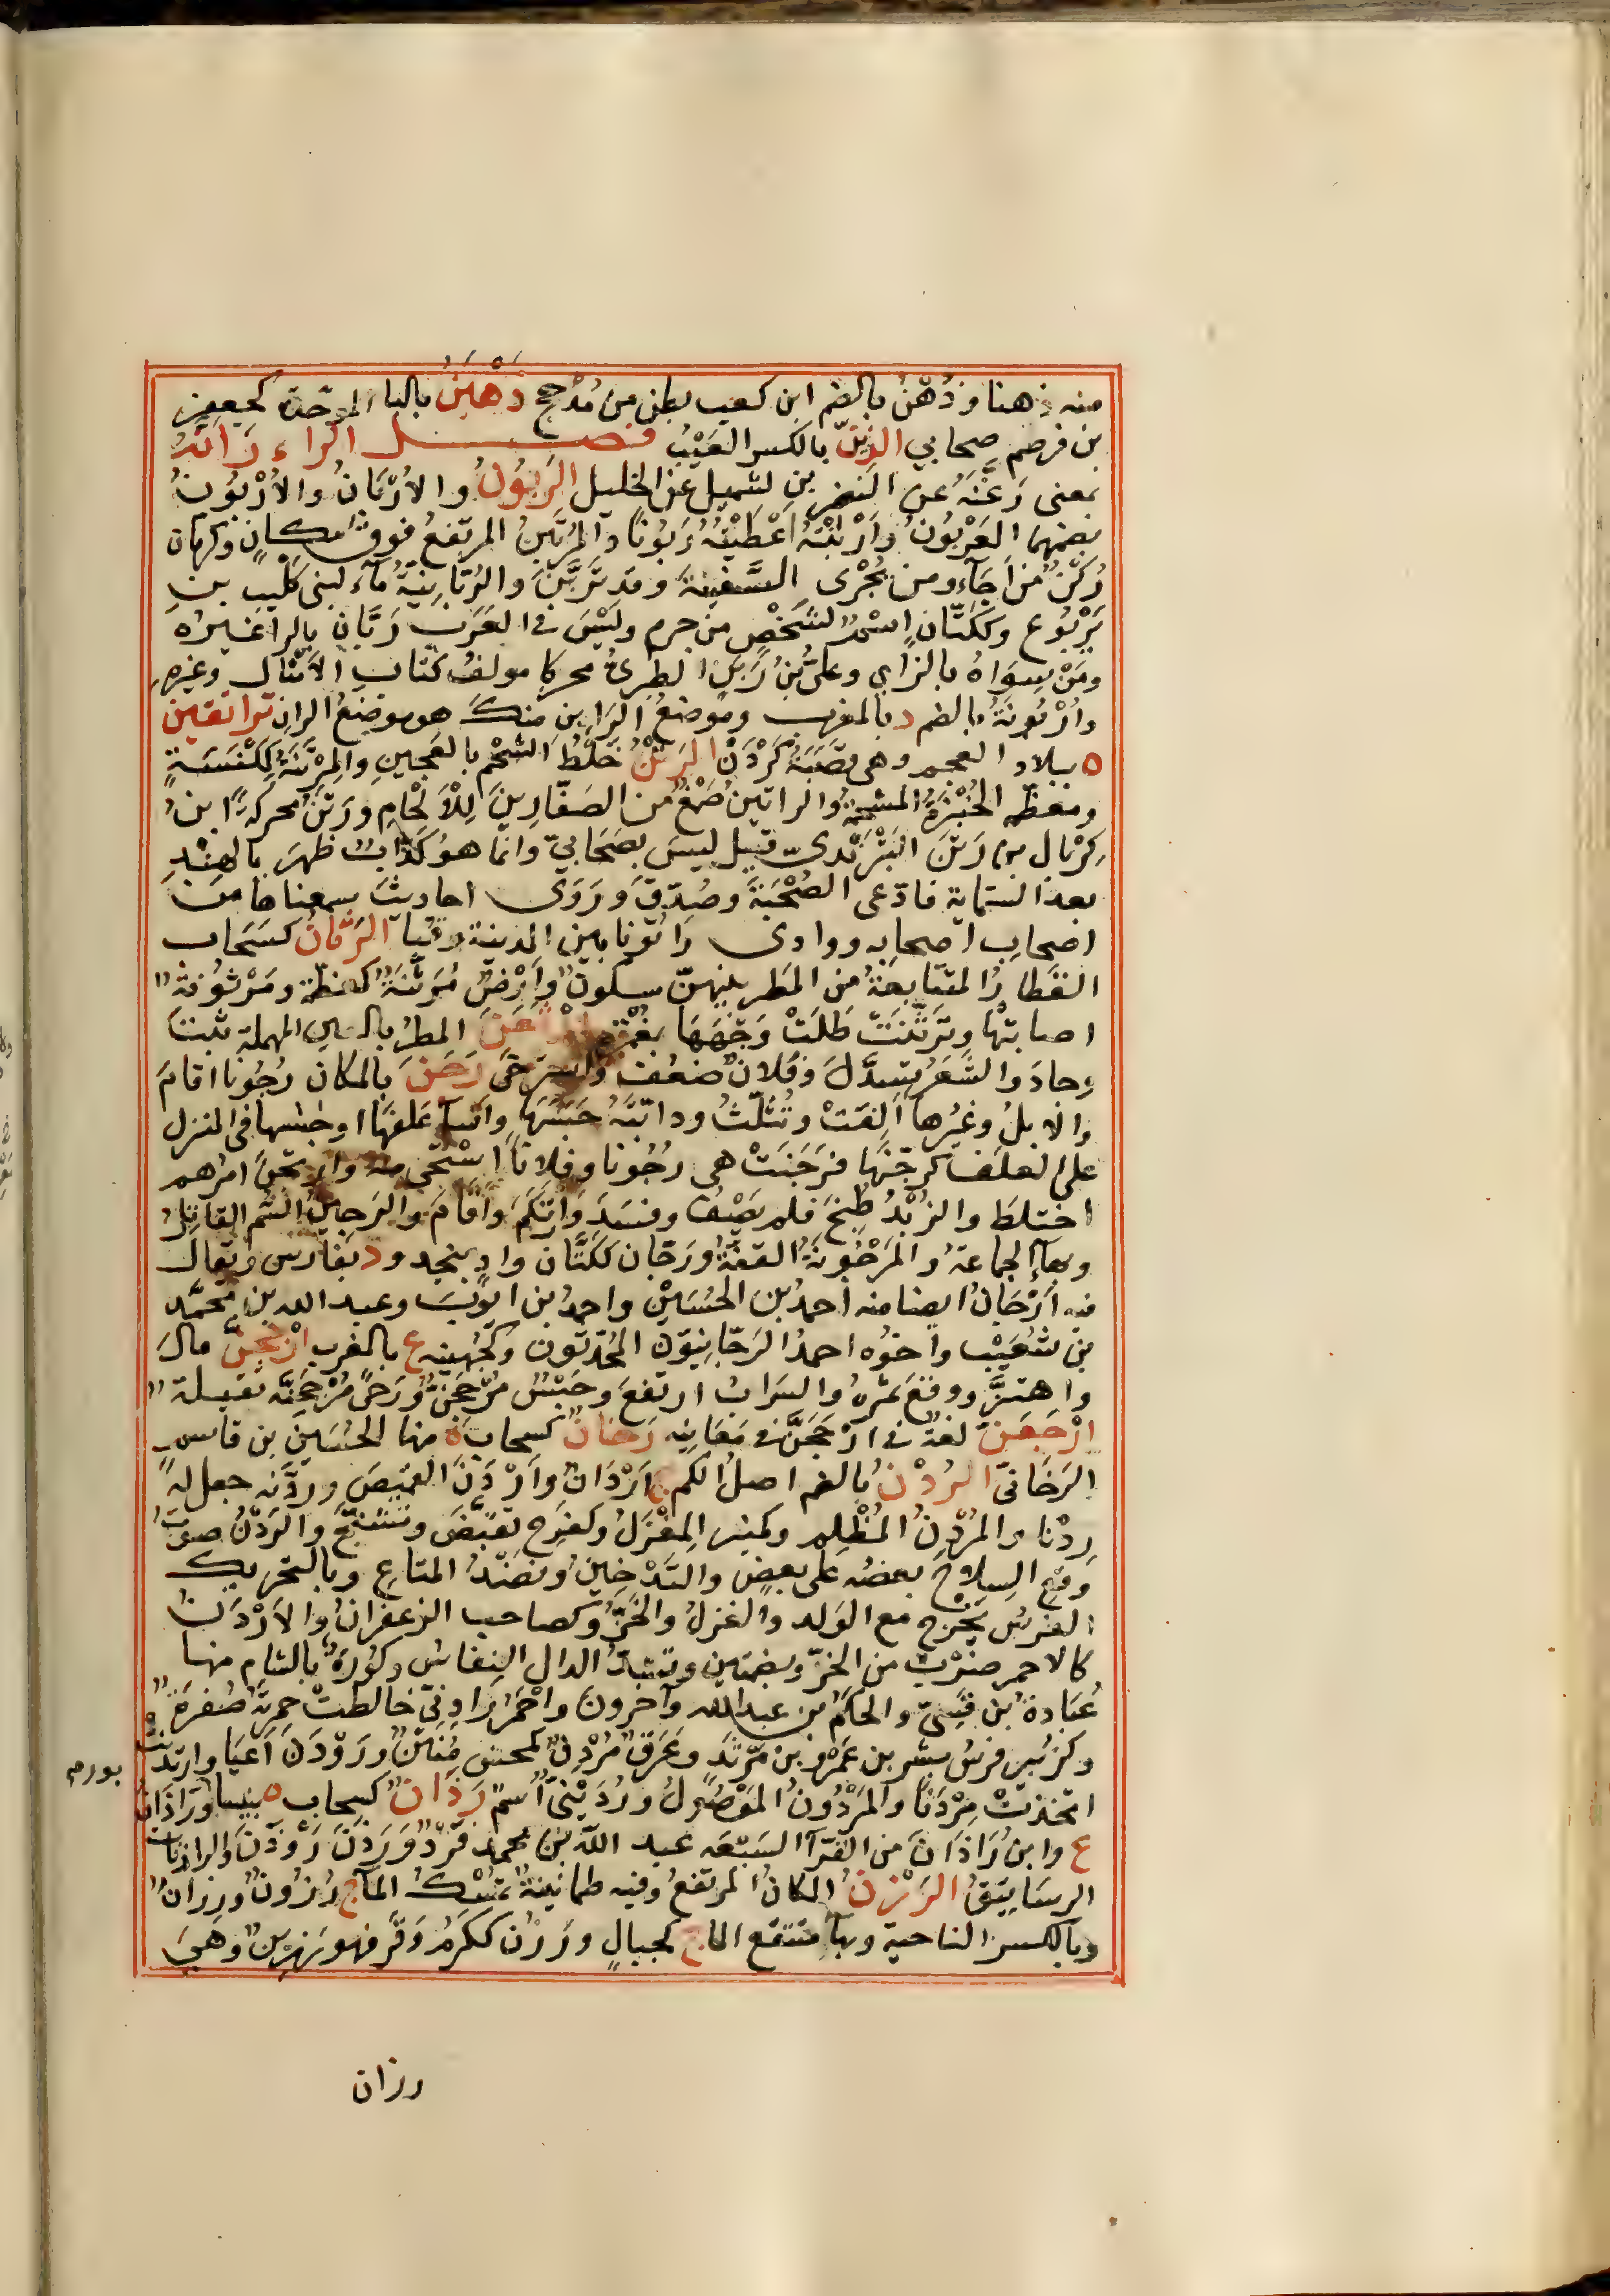 منه ذهنا وذُهْنُ بالضم ابن كعب بطن من مُذحج ذَهْبَنُ بالباء الموحّدة كجعفر
بن قرضم صحابي الذِّينُ بالكسر العَيْبُ فصل الراء رَأَنَّهُ
بمعنى رَعَنَّهُ عن النضر بن شميل عن الخليل الرَّبُونُ والأُرْبَانُ والأُرْبُونُ
بضمهما العَرْبُونُ وأَرْبَنْتُهُ أعْطَيْتُهُ رَبُونًا والمُرْتَبِنُ المرتفعُ فوق مكانٍ وكرمان
رُكْنٌ من أجَآء ومن يُجْرِى السَّفِينةَ وقد تَرَبَّنَ والرُّبَّانِيَّةُ مآء لبنى كُليب بن
يَرْبُوع وككَتّانٍ اسْمٌ لشَخْصٍ من جرم وليْسَ فى العَرَب رَبَّان بالراء غيرُه
ومَنْ سِوَاهُ بالزَّاي وعلىُّ بنُ رَبَنٍ الطبرىُّ محركا مولفُ كتاب الأمْثالِ وغيرِه
وأُرْبُونَةُ بالضم د بالمغرب وموضعُ الرَّابِن منك هو موضعُ الران تراتقين
ه ببلاد العجم وهى قصَبَةُ كَرْدَن الرَّتْنُ خَلْطُ الشحْم بالعَجينِ والمِرْتَنَةُ كمِكْنَسَةٍ
ومعظّمٍ الخُبْزَةُ المشحمةُ والراتين صَمْغٌ من الصَفّارينَ للأَلْحَامِ ورَتَنُ محركةً ابنُ
كِرْبال بن رَتَنَ البَتْرَنْدىّ قيل ليسَ بصَحابيّ وانما هو كذابٌ ظهرَ بالهِنْدِ
بعد الستماية فادّعى الصُحْبَةَ وصُدِّقَ ورَوَى احاديثَ سمعناها من
اصحابِ اصحابه ووادى رَاتُونا بين المدينة وقبا الرَّثَانُ كسَحاب
القطارُ المتتابعةُ من المَطر بينهنّ سكونٌ وأَرْضٌ مُرَثَّنَةٌ كمعظمة ومَرْثُونةٌ
اصابتْها وتَرَثَّنَتْ طَلَتْ وَجْهَهَا بغُمْرة ارْثَعَنَّ المطرُ بالعين المهملة ثبت
وجادَ والشَعَرُ تسدَّلَ وفُلانٌ ضعُفَ واسترخَى رَجَنَ بالمكان رُجُونا اقامَ
والابلُ وغيرُها أَلِفَتْ وتُثَلَّثُ ودابّتَهُ حبَسَها واَسآ عَلَفَهَا او حبسها فى المنزل
على العلَف كرجّنَها فرَجَنَتْ هى رُجُونا وفلانا اسْتَحَى منه وارتجَنَ امرُهم
اختلطَ والزُبْدُ طُبِخَ فلم يَصْفُ وفسَدَ وَارْتَكَمَ واَقَامَ والرَجِينُ السُّم القاتِلُ
وبهآءٍ الجماعةُ والمَرْجُونَةُ القفّةُ ورَجّان ككَتّان وادٍ بنجد ود بفارس ويقال
فيه اَرَّجَانُ ايضا منه احمدُ بن الحُسَيْن واحمدُ بن ايّوبَ وعبد الله بن محمّد
بن شُعَيْب واخوُه احمدُ الرَجّانِيّون المُحَدّثون وكجُهَينه ع بالمغرب ارْجَحَنَّ مالَ
واهتزَّ ووقعَ بمرّةٍ والسَرابُ ارتفعَ وجَيْشٌ مُرْجَحِنٌّ ورَحىً مُرْجَحِنَّةٌ ثقيلةٌ
ارْجَعَنَّ لغةٌ فى ارْجَحَنَّ فى مَعَانِيه رَخَانٌ كسحاب ة منها الحُسَيْن بن قاسمٍ
الرَخَانىّ الرُدْنُ بالضم اصلُ الكم ج اَرْدَانٌ وأَرْدَنَ القَمِيصَ وردّنه جعل له
رِدْنا والمُرْدِنُ المُظْلِم وكمِنبر المِغْزَلُ وكفرح تقبّضَ وتشنّجَ والرَدْنُ صوتُ
وَقْعِ السِلاحِ بعضه على بعض والتَدْخِينُ ونَضْدُ المتاعِ وبالتحريك
الغِرْسُ يَخْرُج مع الوَلد والغزلُ والخَزُّ وكصاحب الزعفرانُ والأرْدَنُ
كالاحمر ضَرْبٌ من الخزّ وبضمتين وتشدّ الدال النعاسُ وكُورةٌ بالشام منها
عُبَادةُ بن نُسَىّ والحَكَمُ بن عبد الله وآخرون واحْمَرُ رادِنِىّ خالطتْ حمرتَه صُفرةٌ
وكزُبير فرسُ بِشْر بن عَمْرِو بن مَرْثَد وعَرَقٌ مُرْدِنٌ كمحسن مُنْتِنٌ ورَوْدَنَ أَعيَا وارتدنَتْ
اتخذتْ مِرْدَنًا والمَرْدُونُ المَوْصُولُ ورُدَيْنِىٌّ اسمٌ رَذَانٌ كسحاب ه بنيسابور ورَاذَانُ
ع وابنُ رَاذَانَ من القُرّآء السَبْعَه عبد الله بن محمد فَرْدٌ ورَذَنَ رَوْذَنَ والراذنات
الرسَاتِيقُ الرَّزْنُ المكانُ المرتفعُ وفيه طمانينةٌ تُمْسِكُ المآء ج رُزُونٌ ورِزانٌ
وبالكسر الناحية وبهآءٍ مَنْقع الماء ج كجبالٍ ورَزُن ككَرُمَ وَقَر فهو رَزينٌ وهىَ
رزان